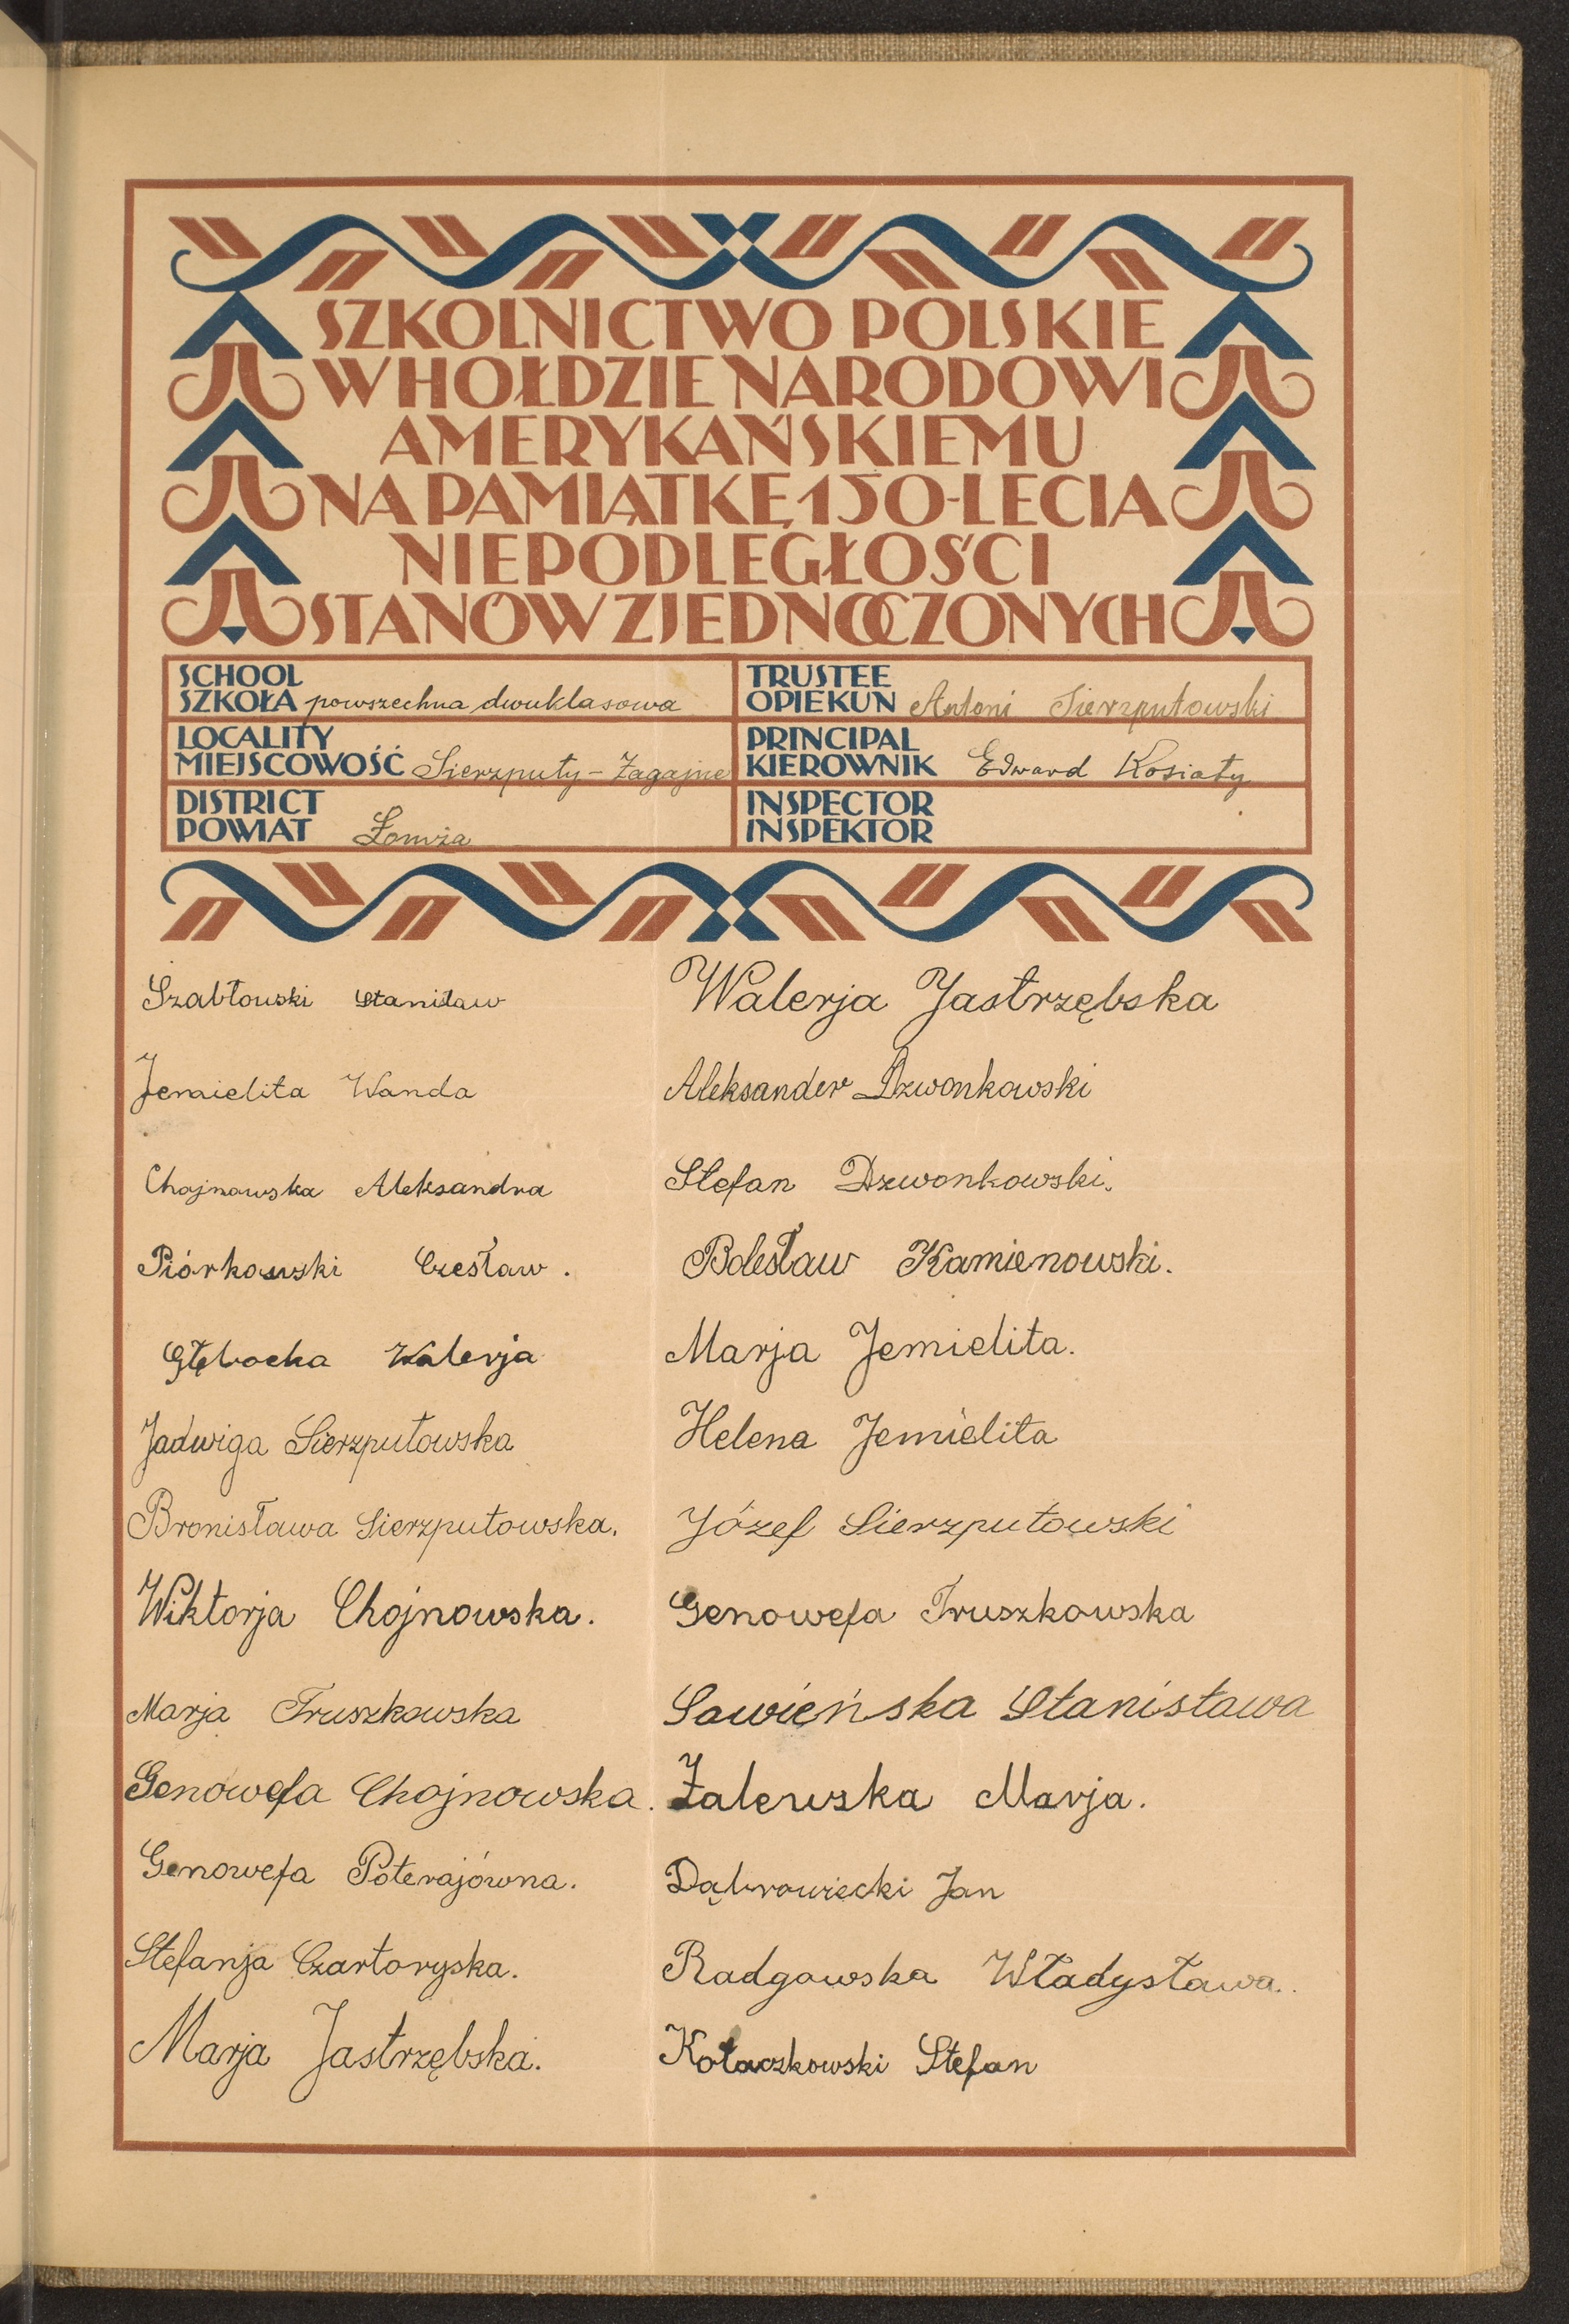 SZKOLNICTWO POLSKIE
W HOŁDZIE NARODOWI
AMERYKAŃSKIEMU
NA PAMIĄTKĘ 150-LECIA
NIEPODLEGŁOŚCI
STANÓW ZJEDNOCZONYCH
SCHOOL
SZKOŁA powszechna dwuklasowa
LOCALITY
MIEJSCOWOŚĆ Sierzputy-Zagajne
DISTRICT
POWIAT Łomża
TRUSTEE
OPIEKUN Antoni Sierzputowski
PRINCIPAL
KIEROWNIK Edward Kosiaty
INSPECTOR
INSPEKTOR
Szabłowski Stanisław
Jemielita Wanda
Chojnowska Aleksandra
Piórkowski Czesław.
Głębocka Walerja
Jadwiga Sierzputowska
Bronisława Sierzputowska.
Wiktorja Chojnowska.
Marja Truszkowska
Genowefa Chojnowska.
Genowefa Poterajówna.
Stefanja Czartoryska.
Marja Jastrzębska.
Walerja Jastrzębska
Aleksander Dzwonkowski
Stefan Dzwonkowski.
Bolesław Kamienowski.
Marja Jemielita.
Helena Jemielita
Józef Sierzputowski
Genowefa Truszkowska
Sawieńska Stanisława
Zalewska Marja.
Dąbrowiecki Jan
Radgowska Władysława.
Kołaczkowski Stefan